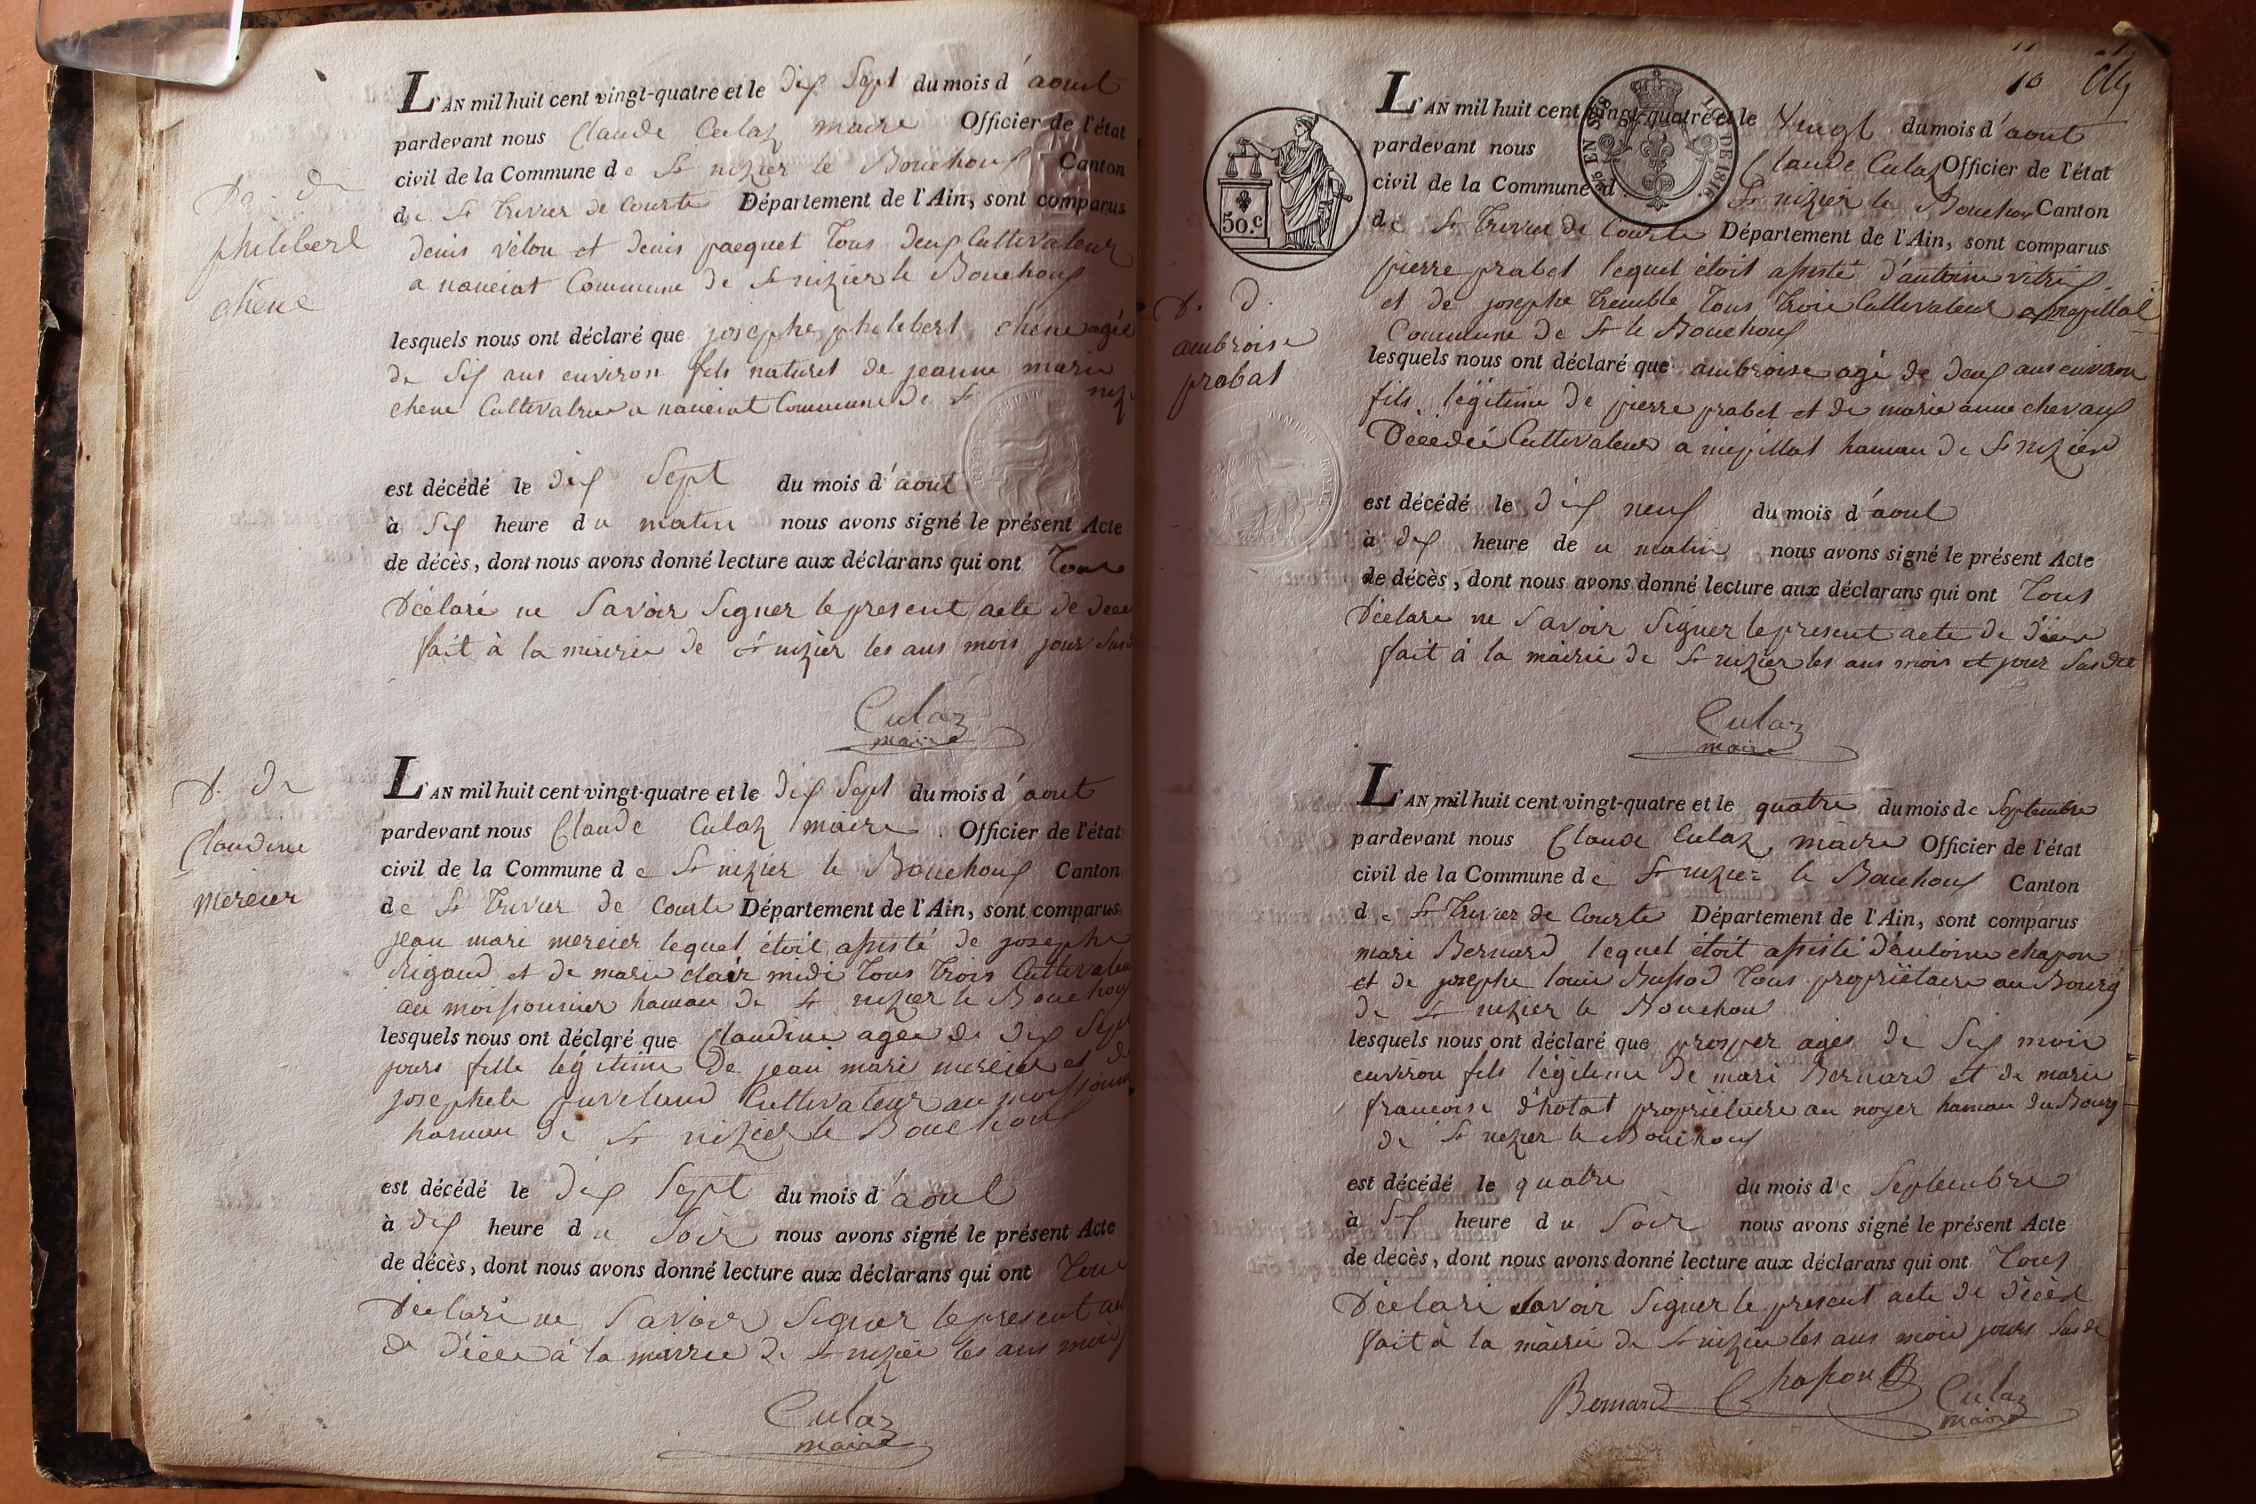 L'AN mil huit cent vingt-quatre et le dix Sept du mois d'aout
pardevant nous Claude Culaz maire Officier de l'état
civil de la Commune de St nizier le Bouchoux Canton
de St trivier de Courte Département de l'Ain, sont comparus
denis vélon et denis pacquet tous deux Cultivateur
a naveiat Commune de St nizier le Bouchoux
lesquels nous ont déclaré que josephe philibert chêne agée
de Six ans environ fils naturel de jeanne marie
chene Cultivatrice a naveiat Commune de St niz
est décédé le dix Sept du mois d'aout
à Six heure du matin nous avons signé le présent Acte
de décès, dont nous avons donné lecture aux déclarans qui ont Tous
Déclaré ne Savoir Signer le present acte de dece
fait à la mairie de St nizier les ans mois jour Sus
Culaz
maire
D. de
philibert
chêne
L'AN mil huit cent vingt-quatre et le dix Sept du mois d'aout
pardevant nous Claude Culaz maire Officier de l'état
civil de la Commune de St nizier le Bouchoux Canton
de St trivier de Courte Département de l'Ain, sont comparus
jean mari mercier lequel étoit assisté de josephe
Rigaud et de marie clair midi tous trois Cultivateu
au moissonnier hamau de St nizier le Bouchoux
lesquels nous ont déclaré que Claudine agee de dix Sept
jours fille légitime de jean mari mercier et de
josephete puveland Cultivateur au moissonn
hamau de St nizier le Bouchoux
est décédé le dix Sept du mois d'aout
à dix heure du Soir nous avons signé le présent Acte
de décès, dont nous avons donné lecture aux déclarans qui ont Tous
Déclaré ne Savoir Signer le present ac
de décé à la mairie de St nizier les ans mois
Culaz
maire
D. de
Claudine
mercier
10
50.c
EN SUS
LOI DE 1816.
L'AN mil huit cent vingt-quatre et le Vingt du mois d'aout
pardevant nous Claude Culaz Officier de l'état
civil de la Commune d St nizier le Bouchou Canton
de St trivier de Courte Département de l'Ain, sont comparus
pierre prabel lequel étoit assisté d'antoine vitrix
et de josephe tremble tous trois Cultivateur a mépillat
Commune de St le Bouchoux
lesquels nous ont déclaré que ambroise agé de deux ans environ
fils légitime de pierre prabel et de marie anne chevaux
Décedée Cultivateur a mépillat hamau de St nizier
est décédé le dix neuf du mois d'aout
à dix heure de u matin nous avons signé le présent Acte
de décès, dont nous avons donné lecture aux déclarans qui ont Tous
Déclare ne Savoir Signer le present acte de
fait à la mairie de St nizier les ans mois et jour Susdit
Culaz
maire
D. D.
ambroise
prabal
L'AN mil huit cent vingt-quatre et le quatre du mois de Septembre
pardevant nous Claude Culaz maire Officier de l'état
civil de la Commune de St nizier le Bouchoux Canton
de St trivier de Courte Département de l'Ain, sont comparus
mari Bernard lequel étoit assisté d'antoine chapon
et de josephe louis Bussod tous propriétaire au Bourg
de St nizier le Bouchou
lesquels nous ont déclaré que prosper agés de Six mois
environ fils légitime de mari Bernard et de marie
francoise d'hotat propriétaire au noyer hamau du Bourg
de St nizier le Bouchoux
est décédé le quatre du mois de Septembre
à Six heure du Soir nous avons signé le présent Acte
de décès, dont nous avons donné lecture aux déclarans qui ont Tous
Déclaré Savoir Signer le present acte de décèd
fait à la mairie de St nizier les ans mois jours Susde
Bernard Chapon Culaz
maire